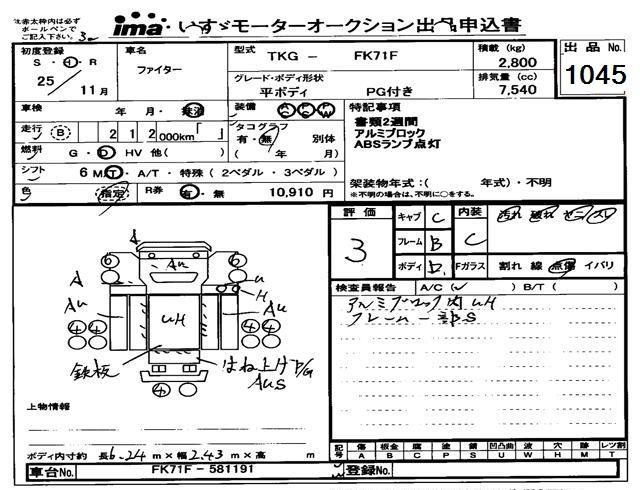 ※赤太枠内は必ず
ボールペンで
ご記入下さい。
ima いすゞモーターオークション出品申込書
初度登録
S・H・R
25/11月
車名
ファイター
型式 TKG - FK71F
グレード・ボディ形状
平ボディ PG付き
積載 (kg)
2,800
排気量 (cc)
7,540
出品 No.
1045
車検 年・月・抹消
装備 A/C P/S P/W
走行 (B) 212000km「 」
タコグラフ
有・無 別体
( 年 月)
燃料 G・D HV 他( )
シフト 6 M/T・A/T・特殊 (2ペダル・3ペダル)
色 (指定) R券 有・無 10,910 円
特記事項
書類2週間
アルミブロック
ABSランプ点灯
架装物年式:( 年式)・不明
※不明の場合は、不明に○をする。
評価
3
キャブ C
フレーム B
ボディ D
内装 C
汚れ 破れ ヤニ スレ
Fガラス 割れ 線 点傷 イバリ
検査員報告 A/C(✓) B/T( )
アルミブロック内UH
フレーム一部S
6 6
A AU A U H
AU AU
UH
4 4 4 4
鉄板
はね上げP/G
AUS
4
上物情報
ボディ内寸約 長6.24m×幅2.43m×高 m
記号 傷 板金 腐 塗 錆 凹凸曲 波 穴 跡 レツ割
A B C P S U W H M T
車台No. FK71F - 581191
登録No.